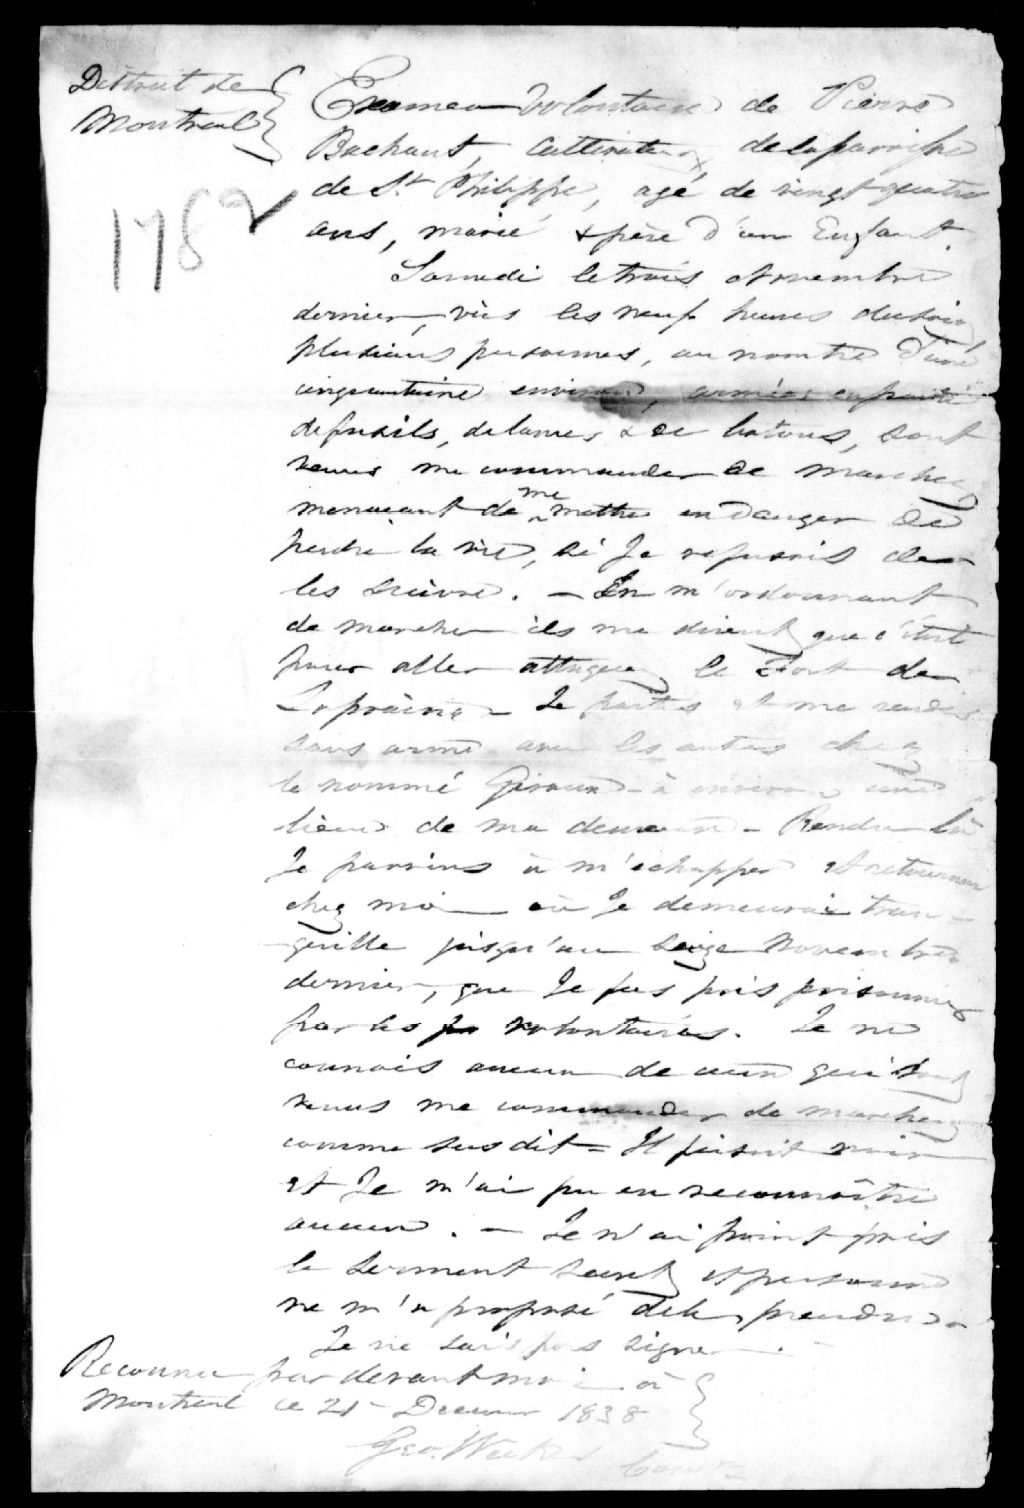 District de
Montreal
1782
Examen Volontaire de Pierre
Bachant, Cultivateur de la parroisse
de St. Philippe, agé de vingt quatre
ans, marié & père d'un Enfant.
Samedi le trois Novembre
dernier, vers les neuf heures du soir
plusieurs personnes, au nombre d'une
cinquantaine environ, armées en partie
de fusils, de lames & de batons, sont
venus me commander de marcher
menacant de me mettre en danger de
perdre la vie, si Je refusais de
les suivre. — En m'ordonnant
de marcher ils me dirent que c'étoit
pour aller attaquer le Fort de
Laprairie — Je partis et me rendis
sans arme avec les autres chez
le nommé à environ une
lieue de ma demeure — Rendu là
Je parvins à m'echapper et retourner
chez moi où Je demeurai tran-
quille jusqu'au seize Novembre
dernier, que Je fus pris prisonnier
par les volontaires. Je ne
connois aucun de ceux qui sont
venus me commander de marcher
comme susdit = Il faisoit noir
et Je n'ai pu en reconnoître
aucun. — Je n'ai point pris
le serment secret et personne
ne m'a proposé de le prendre —
Je ne sais pas signer. —
Reconnu par devant moi à
Montreal ce 21 Decemr 1838
Geo. Weekes